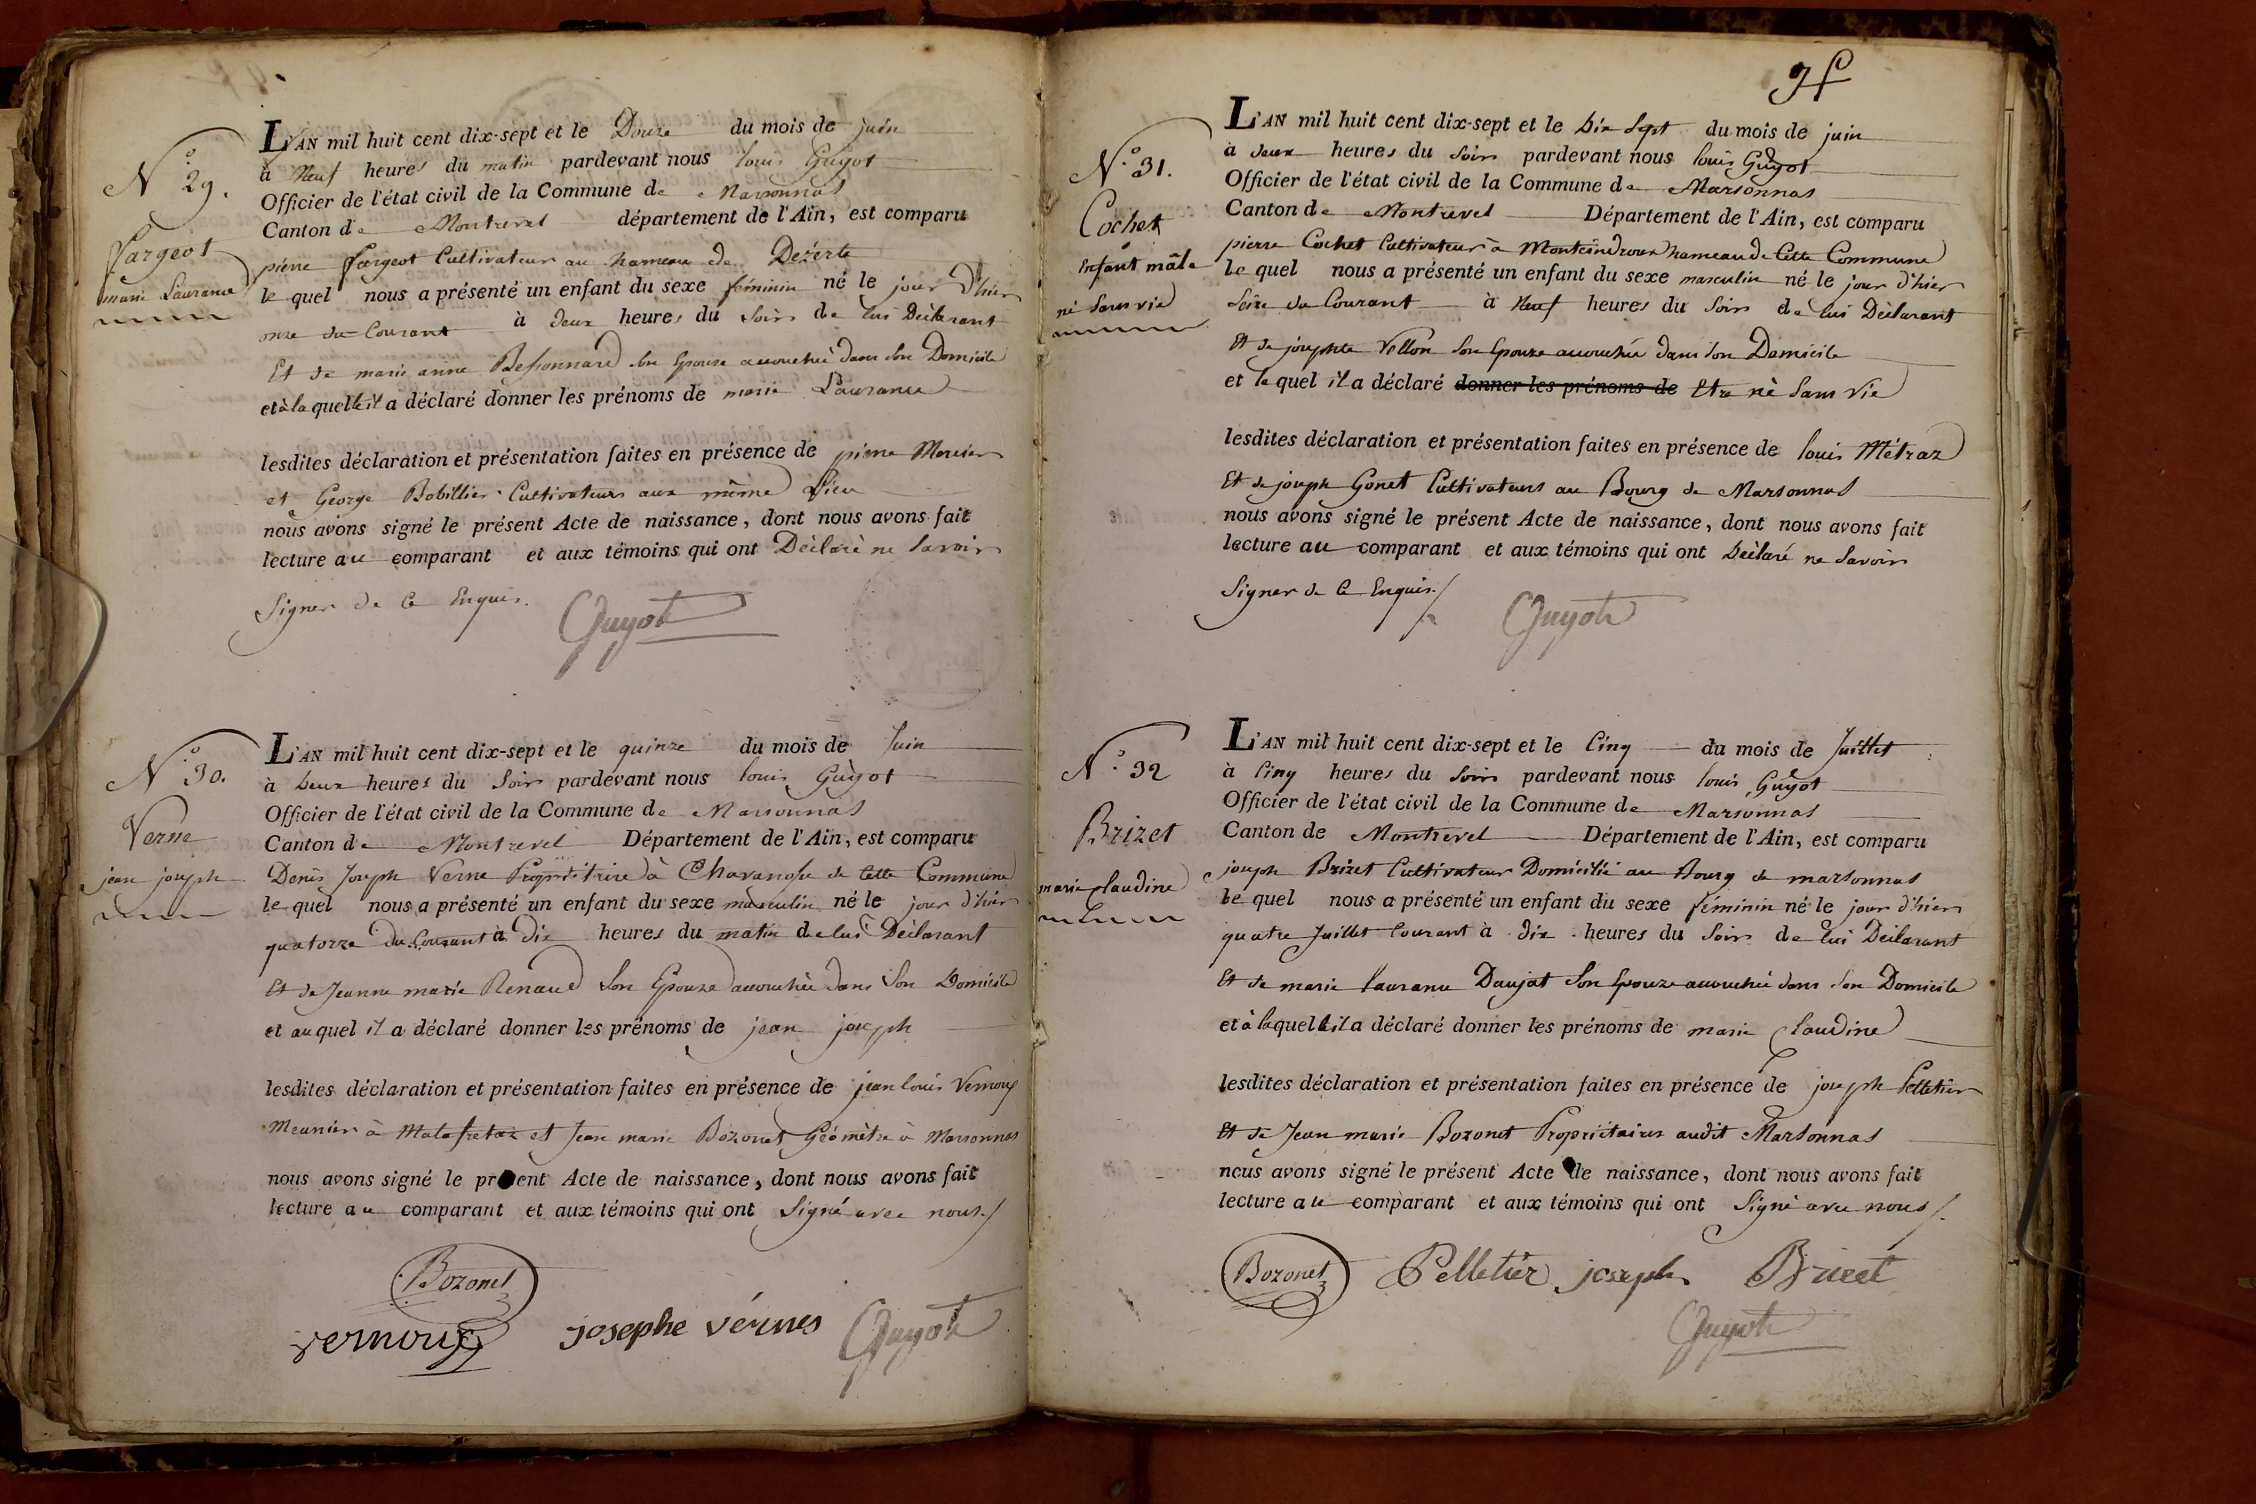 N.º 29.
fargeot
marie Laurance
L'AN mil huit cent dix-sept et le Douze du mois de juin
à Neuf heures du matin pardevant nous louis Guÿot
Officier de l'état civil de la Commune de Marsonnas
Canton de Montrevel département de l'Ain, est comparu
pierre fargeot Cultivateur au hameau de Dezerte
le quel nous a présenté un enfant du sexe féminin né le jour d'hier
onze du Courant à deux heures du Soir de lui Déclarant
Et de marie anne Bessonnard son Epouze accouchée dans son Domicile
et à la quelle il a déclaré donner les prénoms de marie Laurance
lesdites déclaration et présentation faites en présence de pierre Mercier
et George Bobillier Cultivateurs aux même Lieu
nous avons signé le présent Acte de naissance, dont nous avons fait
lecture au comparant et aux témoins qui ont Déclaré ne Savoir
Signer de Ce Enquis.
Guyot
N.º 30.
Verne
jean joseph
L'AN mil huit cent dix-sept et le quinze du mois de Juin
à Deux heures du Soir pardevant nous louis Guÿot
Officier de l'état civil de la Commune de Marsonnas
Canton de Montrevel Département de l'Ain, est comparu
Denis Joseph Verne Propriétaire à Chavanosse de Cette Commune
le quel nous a présenté un enfant du sexe masculin né le jour d'hier
quatorze du Courant à Dix heures du matin de lui Déclarant
Et de Jeanne marie Renaud Son Epouze accouchée dans Son Domicile
et au quel il a déclaré donner les prénoms de jean joseph
lesdites déclaration et présentation faites en présence de jean louis Vernoux
Meunier à Malafretaz et Jean marie Bozonet Géomètre à Marsonnas
nous avons signé le présent Acte de naissance, dont nous avons fait
lecture au comparant et aux témoins qui ont Signé avec nous ./
Bozonet
vernoux josephe vérnes Guyot
N.º 31.
Cochet
Enfant mâle
né Sans vie
L'AN mil huit cent dix-sept et le Dix Sept du mois de juin
à deux heures du Soir pardevant nous louis Guÿot
Officier de l'état civil de la Commune de Marsonnas
Canton de Montrevel Département de l'Ain, est comparu
pierre Cochet Cultivateur à Monteindroux hameau de Cette Commune
le quel nous a présenté un enfant du sexe masculin né le jour d'hier
Seize du Courant à Neuf heures du Soir de lui Déclarant
Et de josephte Vellon Son Epouze accouchée dans Son Domicile
et le quel il a déclaré donner les prénoms de Etre né Sans Vie
lesdites déclaration et présentation faites en présence de louis Métraz
Et de joseph Gonet Cultivateurs au Bourg de Marsonnas
nous avons signé le présent Acte de naissance, dont nous avons fait
lecture au comparant et aux témoins qui ont Déclaré ne Savoir
Signer de Ce Enquis ./
Guyot
N.º 32
Brizet
marie Claudine
L'AN mil huit cent dix-sept et le Cinq du mois de Juillet
à Cinq heures du Soir pardevant nous louis Guÿot
Officier de l'état civil de la Commune de Marsonnas
Canton de Montrevel Département de l'Ain, est comparu
joseph Brizet Cultivateur Domicilié au Bourg de marsonnas
le quel nous a présenté un enfant du sexe féminin né le jour d'hier
quatre Juillet Courant à dix heures du Soir de lui Déclarant
Et de marie laurance Daujat Son Epouze accouchée dans Son Domicile
et à laquelle il a déclaré donner les prénoms de marie Claudine
lesdites déclaration et présentation faites en présence de joseph Pelletier
Et de Jean marie Bozonet Propriétaires audit Marsonnas
nous avons signé le présent Acte de naissance, dont nous avons fait
lecture au comparant et aux témoins qui ont Signé avec nous ./.
Bozonet Pelletier joseph Brizet
Guyot